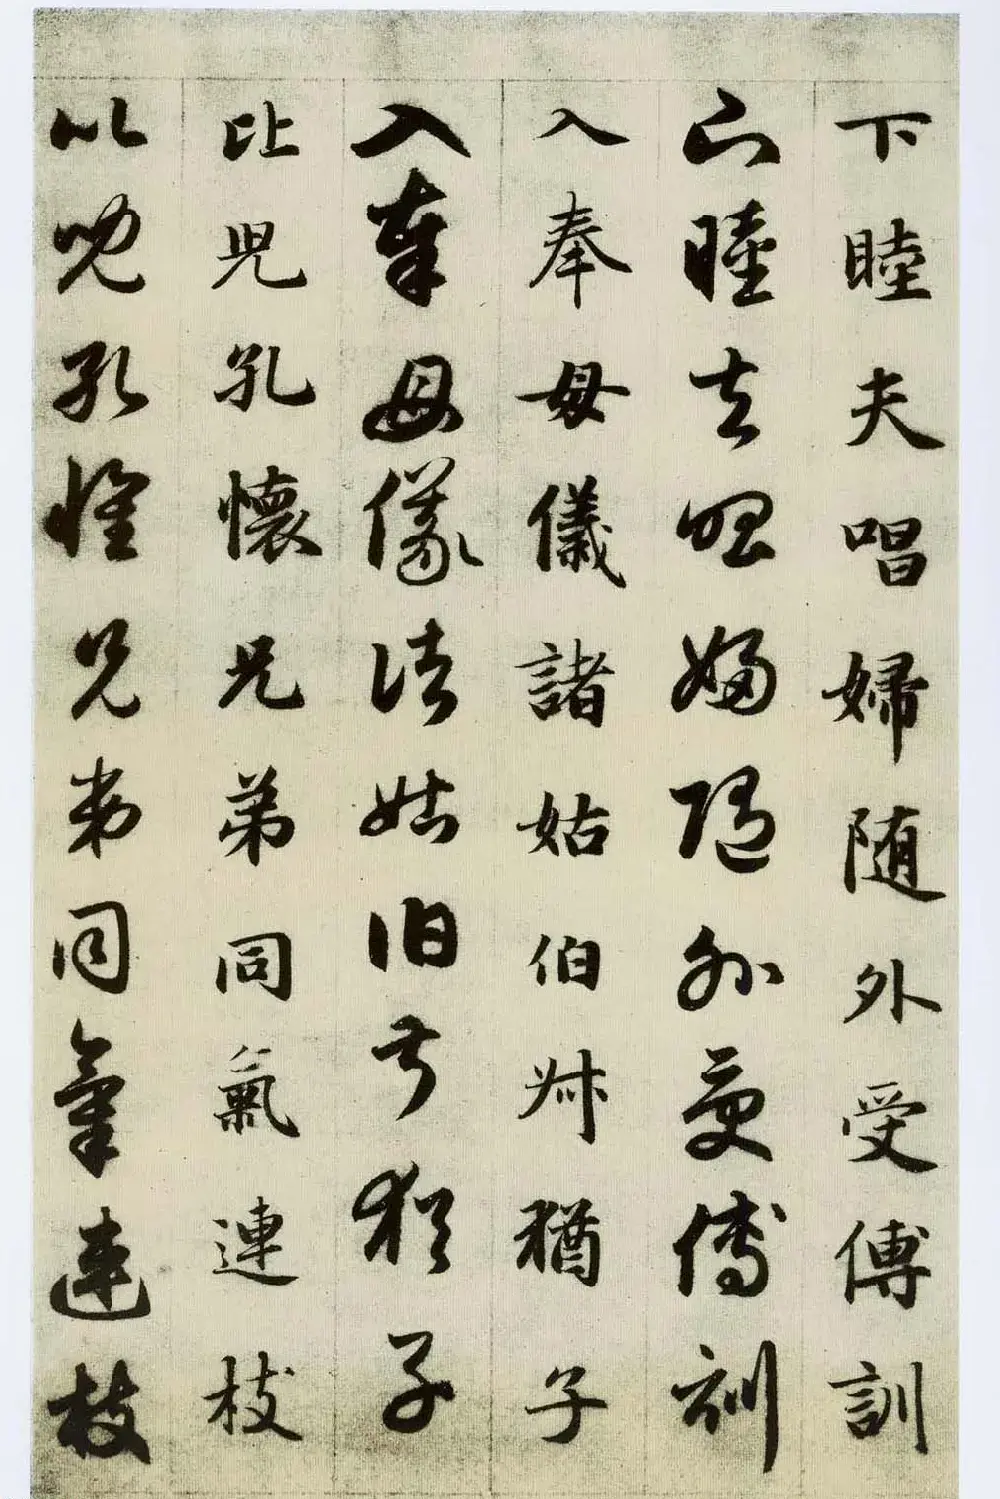 下睦夫唱婦随外受傅訓
下睦夫唱婦随外受傅訓
入奉母儀諸姑伯叔猶子
入奉母儀諸姑伯叔猶子
比兒孔懷兄弟同氣連枝
比兒孔懷兄弟同氣連枝